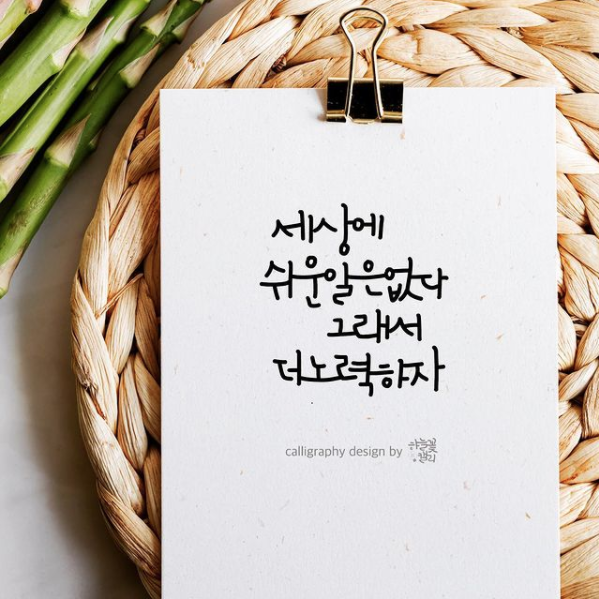 세상에
쉬운일은없다
그래서
더노력하자
calligraphy design by 하늘꽃캘리